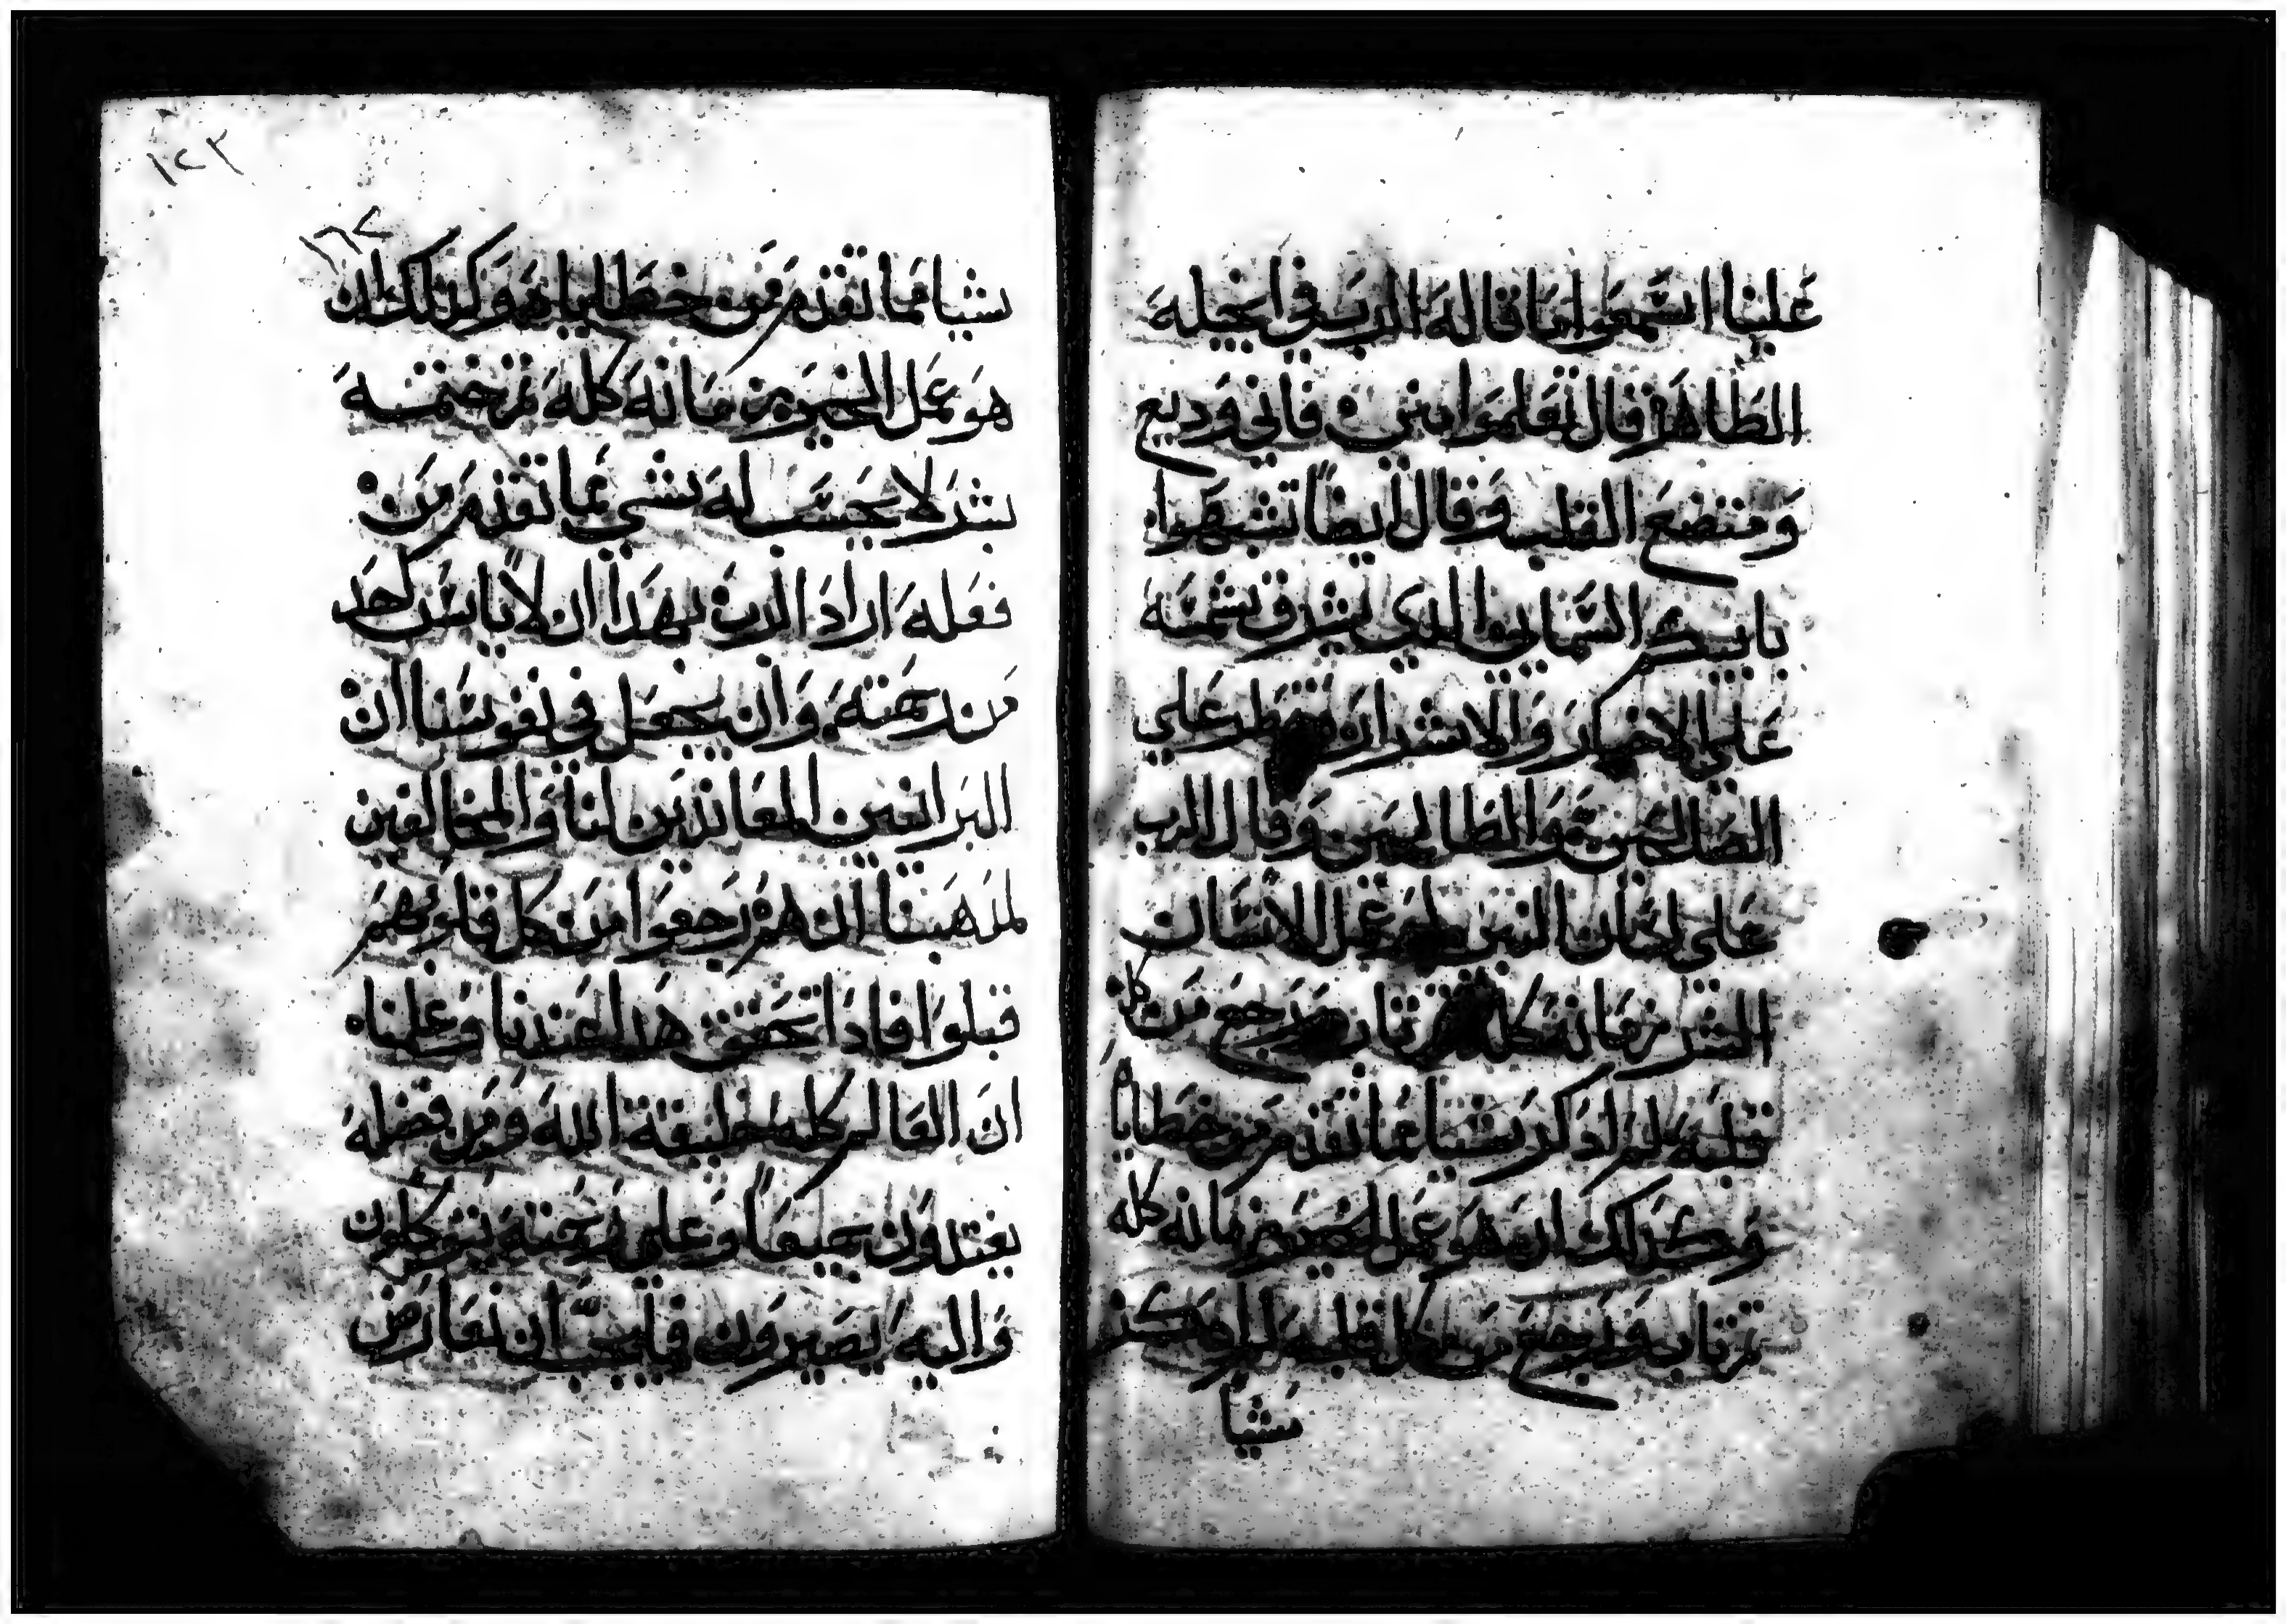 علينا اسمعوا ما قاله الرب في انجيله
الطاهر قال تعلموا مني فاني وديع
ومتضع القلب وقال ايضاً تشبهوا
بابيكم السمايي الدي يشرق شمسه
علي الاخيار والاشرار ويمطر علي
الصالحين والطالحين وقال الرب
علي لسان النبي لو عمل الانسان
الشر زمانه كله ثم تاب ورجع من كل
قلبه لم ادكر شيا مما تقدم من خطاياه
وكدلك ان هو عمل الخير زمانه كله
ثم تاب ورجع من كل قلبه لم
شيا
١٢٣
شيا مما تقدم من خطاياه وكدلك ان
هو عمل الخير زمانه كله ثم ختمه
بشر لا يحسب له شي مما تقدم من
فعله اراد الرب بهدا ان لا ياس احد
من رحمته وان يجعل في نفوسنا ان
البرانيين المعاندين لنا والمخالفين
لمدهبنا ان هم رجعوا من كل قلوبهم
قبلوا فادا تحقق هدا عندنا وعلمنا
ان العالم كله خليقة الله ومن فضله
يغتدون جميعاً وعلي رحمته يتوكلون
واليه يصيرون فليس ان نعارض